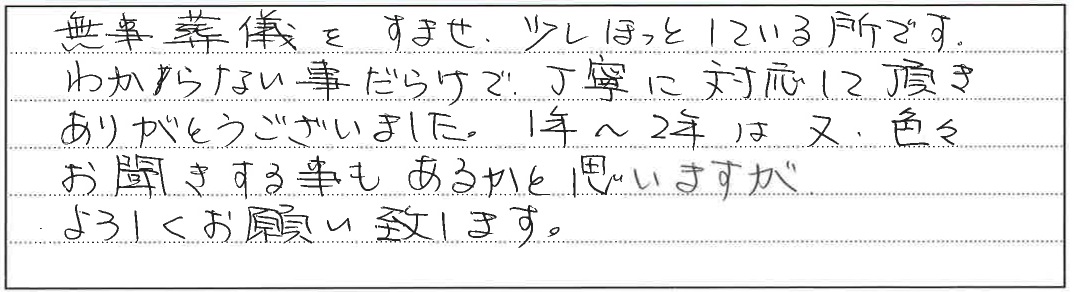 無事葬儀をすませ、少しほっとしている所です。
わからない事だらけで、丁寧に対応して頂き
ありがとうございました。1年～2年は又、色々
お聞きする事もあるかと思いますが
よろしくお願い致します。